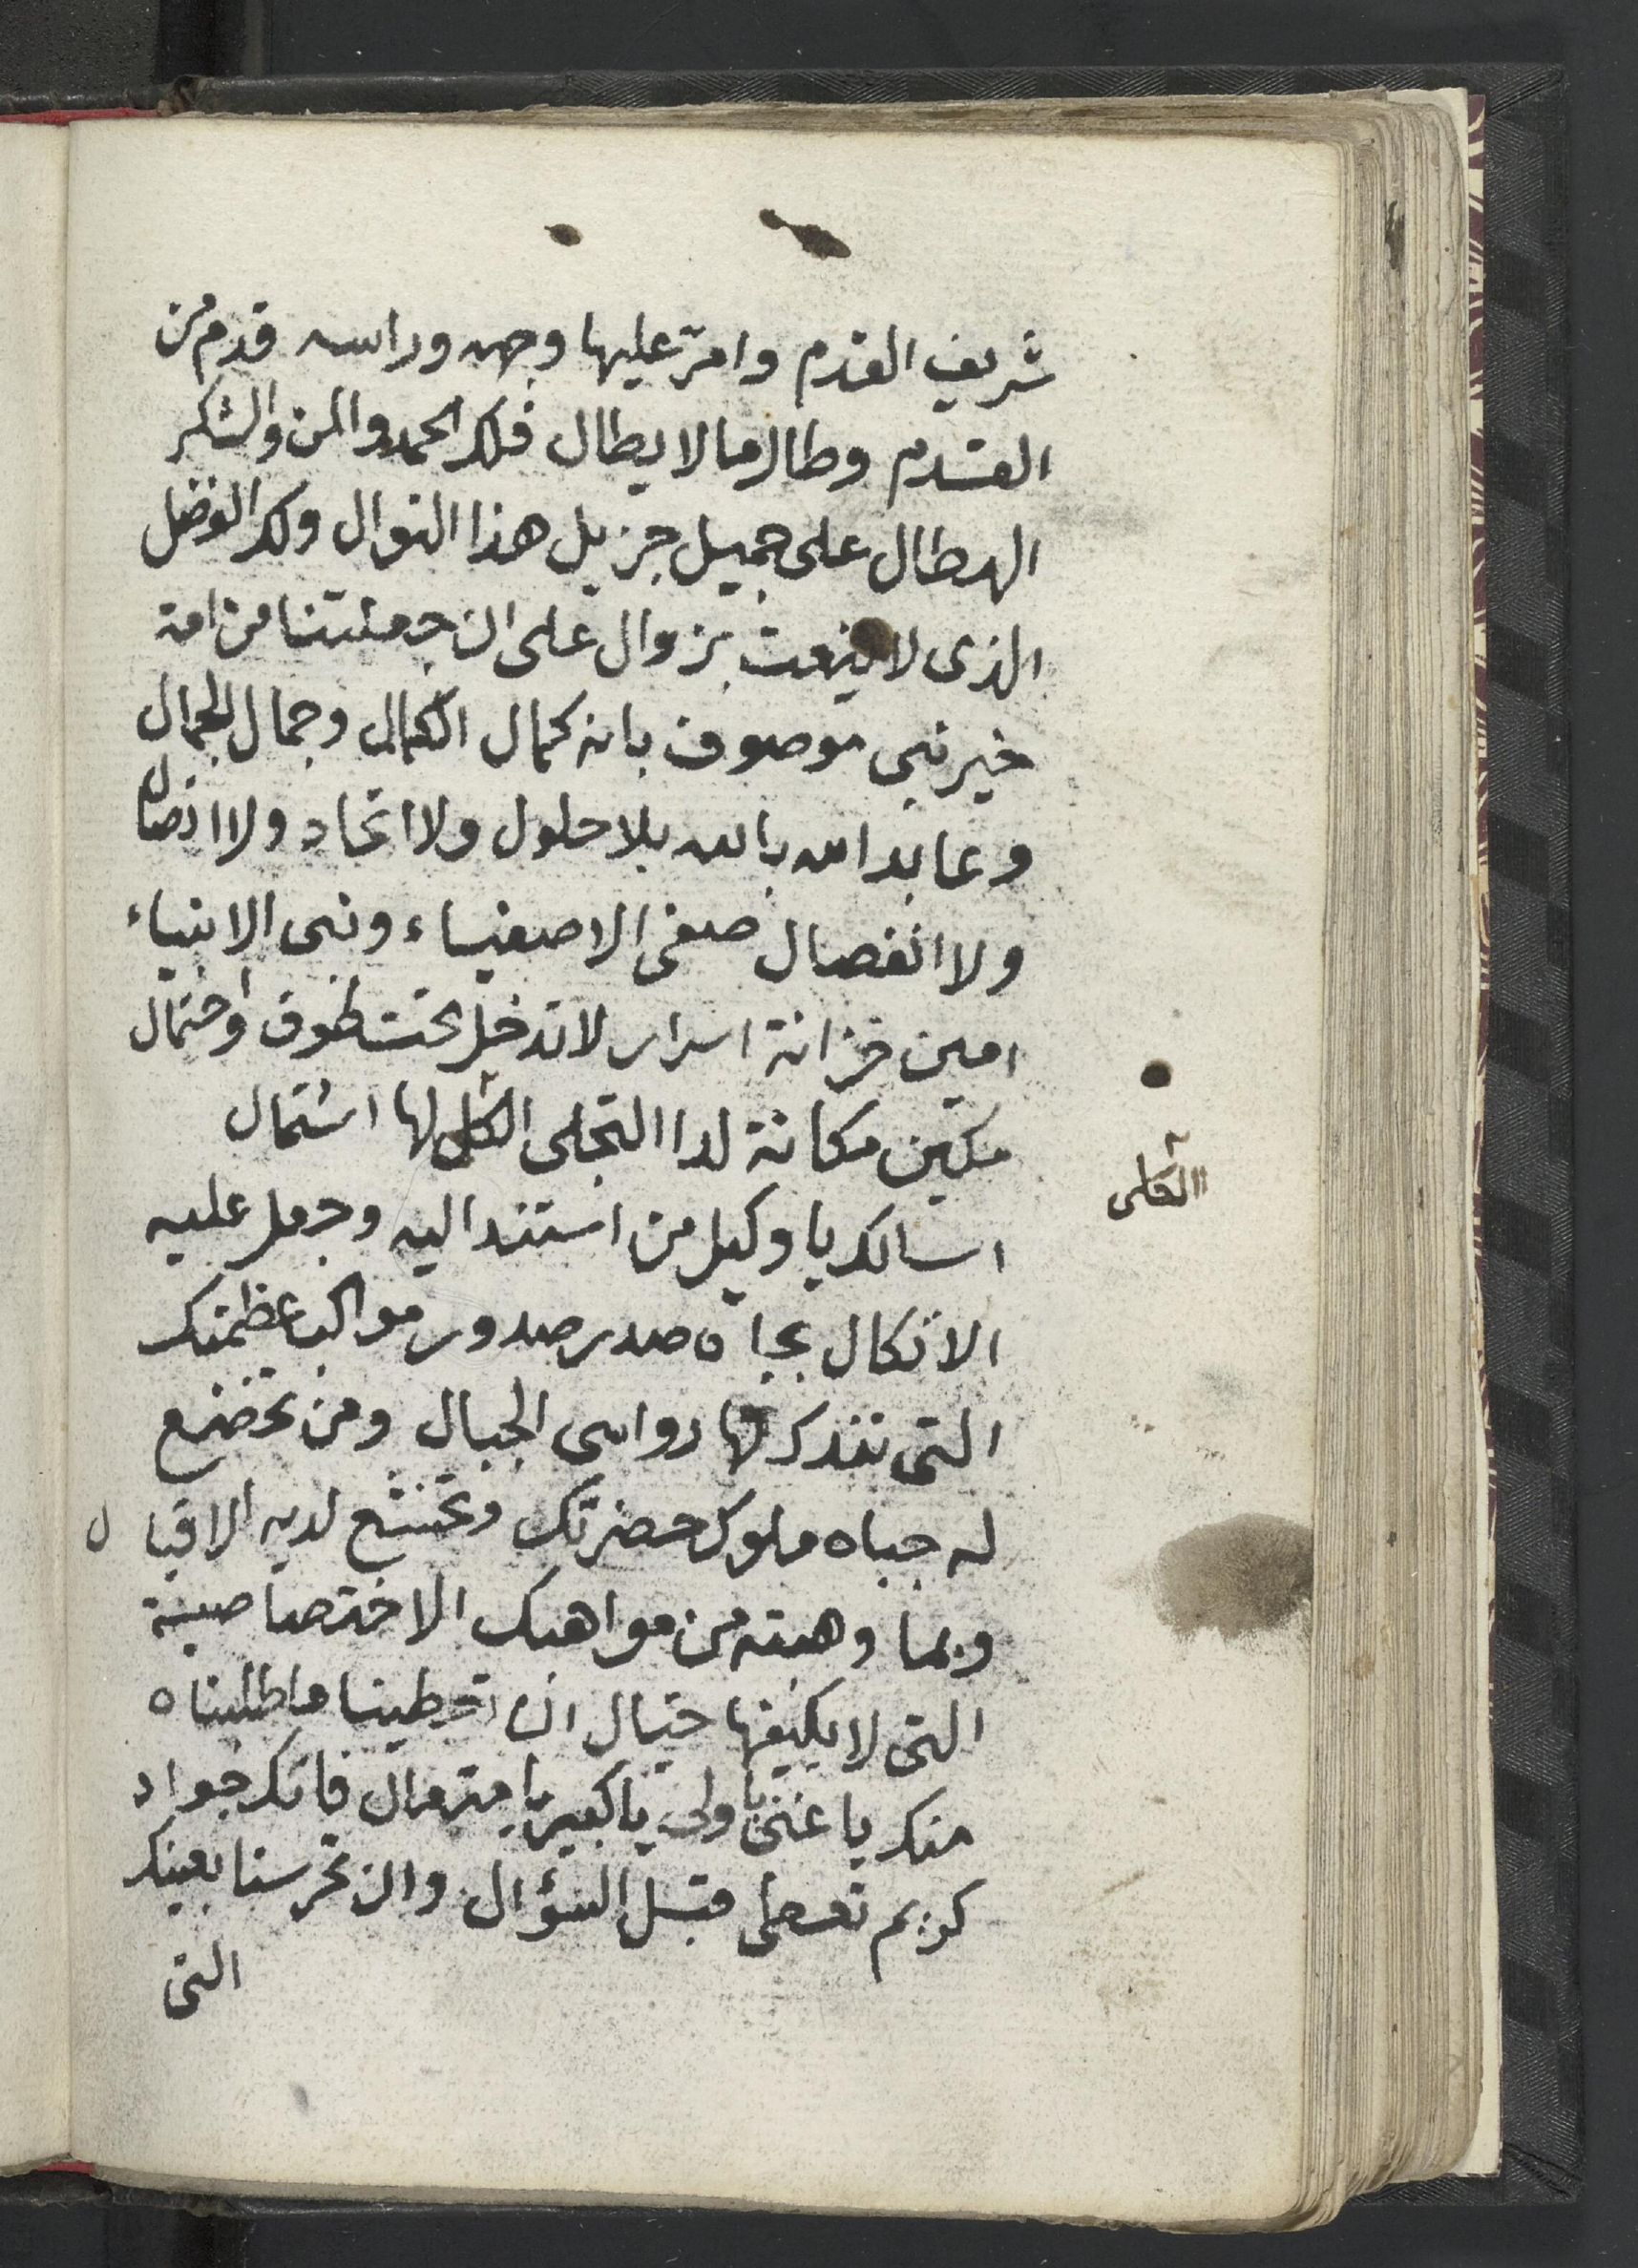 شريف القدم وامرّ عليها وجهه وراسه قدم من
القدم وطال ما لا يطال فلك الحمد والمن والشكر
الهطال على جميل جزيل هذا النوال ولك الفضل
الذى لا ينعت بزوال على ان جعلتنا من امة
خير نبى موصوف بانه كمال الكمال وجمال الجمال
وعابد الله بالله بلا حلول ولا اتحاد ولا اتصال
ولا انفصال صفى الاصفياء ونبى الانبياء
امين خزانة اسرار لا تدخل تحت طوق واحتمال
مكين مكانة لدا التجلى الكلى لها اشتمال
الكلى
اسالك يا وكيل من استند اليه وجعل عليه
الاتكال بجاه صدر صدور مواكب عظمتك
التى تندك لها رواسى الجبال ومن تخضع
له جباه ملوك حضرتك وتخشع لديه الاقبال
وبما وهبته من مواهبك الاختصاصية
التى لا يكيفها خيال ان تعطينا ما طلبناه
منك يا غنى يا ولى يا كبير يا متعال فانك جواد
كريم تعطى قبل السؤال وان تحرسنا بعينك
التى